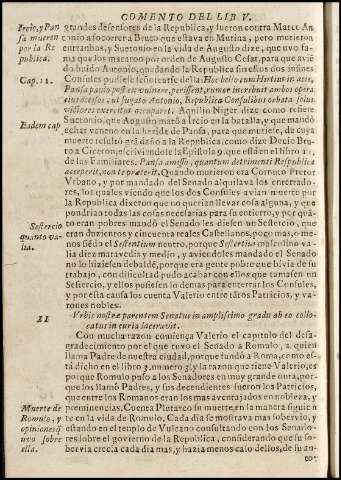 COMENTO DEL LIB V.
Ircio, y Pansa mueren por la Republica.
grandes defensores de la Republica, y fueron contra Marco Antonio
a socorrer a Bruto que estava en Mutina, pero murieron
entranbos, y Suetonio en la vida de Augusto dize, que uvo fama
que los macaron por orden de Augusto Cesar, para que avido
huido Antonio, quedando la Republica sin estos dos insines
Cap. 11.
Consules pudiese señorearse della. Hoc bello cum Hirtius in acie,
Pansa paulo post ex vulnere, perissent, rumor increbuit ambos opera
eius occisos, ut fugato Antonio, Republica Consulibus orbata solus
victores exercitus occuparet. Aquilio Niger dize como refiere
Eadem cap
Suetonio, que Augusto mató a Ircio en la batalla, y que mandó
echar veneno en la herida de Pansa, para que muriese, de cuya
muerte resultó grã daño a la Republica, como dize Decio Bruto
a Ciceron, escriviendole la Epistola 9. que es del libro 11.
de las Familiares. Pansa amisso, quantum detrimenti Respublica
acceperit, non te præterit. Quando murieron era Cornuto Pretor
Vrbano, y por mandado del Senado alquilava los enterradores,
los quales viendo que los dos Consules avian muerto por
la Republica dixeron que no querian llevar cosa alguna, y que
pondrian todas las cosas necesarias para su entierro, y por quãto
eran pobres mandó el Senado les diesen un Sestercio, que
Sestercio quanto valia.
eran duzientos y cincuenta reales Castellanos, poco mas, o menos
siẽdo el Sestertium neutro, porque Sestertius masculino valia
diez maravedis y medio, y aviendoles mandado el Senado
no lo hiziesen de balde, porque era gente pobre que bivia de su
trabajo, con dificultad pudo acabar con ellos que tomasen un
Sestercio, y ellos pusiesen lo demas para enterrar los Consules,
y por esta causa los cuenta Valerio entre tãtos Patricios, y varones
nobles.
11
Vrbis nostræ parentem Senatus in amplissimo gradu ab eo collocatus
in curia laceravit.
Con mucha razon comiença Valerio el capitulo del desagradecimiento
por el que tuvo el Senado a Romulo, a quien
llama Padre de nuestra ciudad, porque fundó a Roma, como está
dicho en el libro 3. numero 3. y la razon que tiene Valerio, es
porque Romulo puso a los Senadores en muy grande onra, porque
los llamó Padres, y sus decendientes fueron los Patricios,
que entre los Romanos eran los mas aventejados en nobleza, y
Muerte de Romulo, y opiniones q̃ uvo sobre ella.
preminencias. Cuenta Plutarco su muerte en la manera siguiente
en la vida de Romulo. Cada dia se mostrava mas sobervio, y
estando en el templo de Vulcano consultando con los Senatores
sobre el govierno de la Republica, considerando que su sobervia
crecia cada dia mas, y hazia menos caso dellos, de su an-